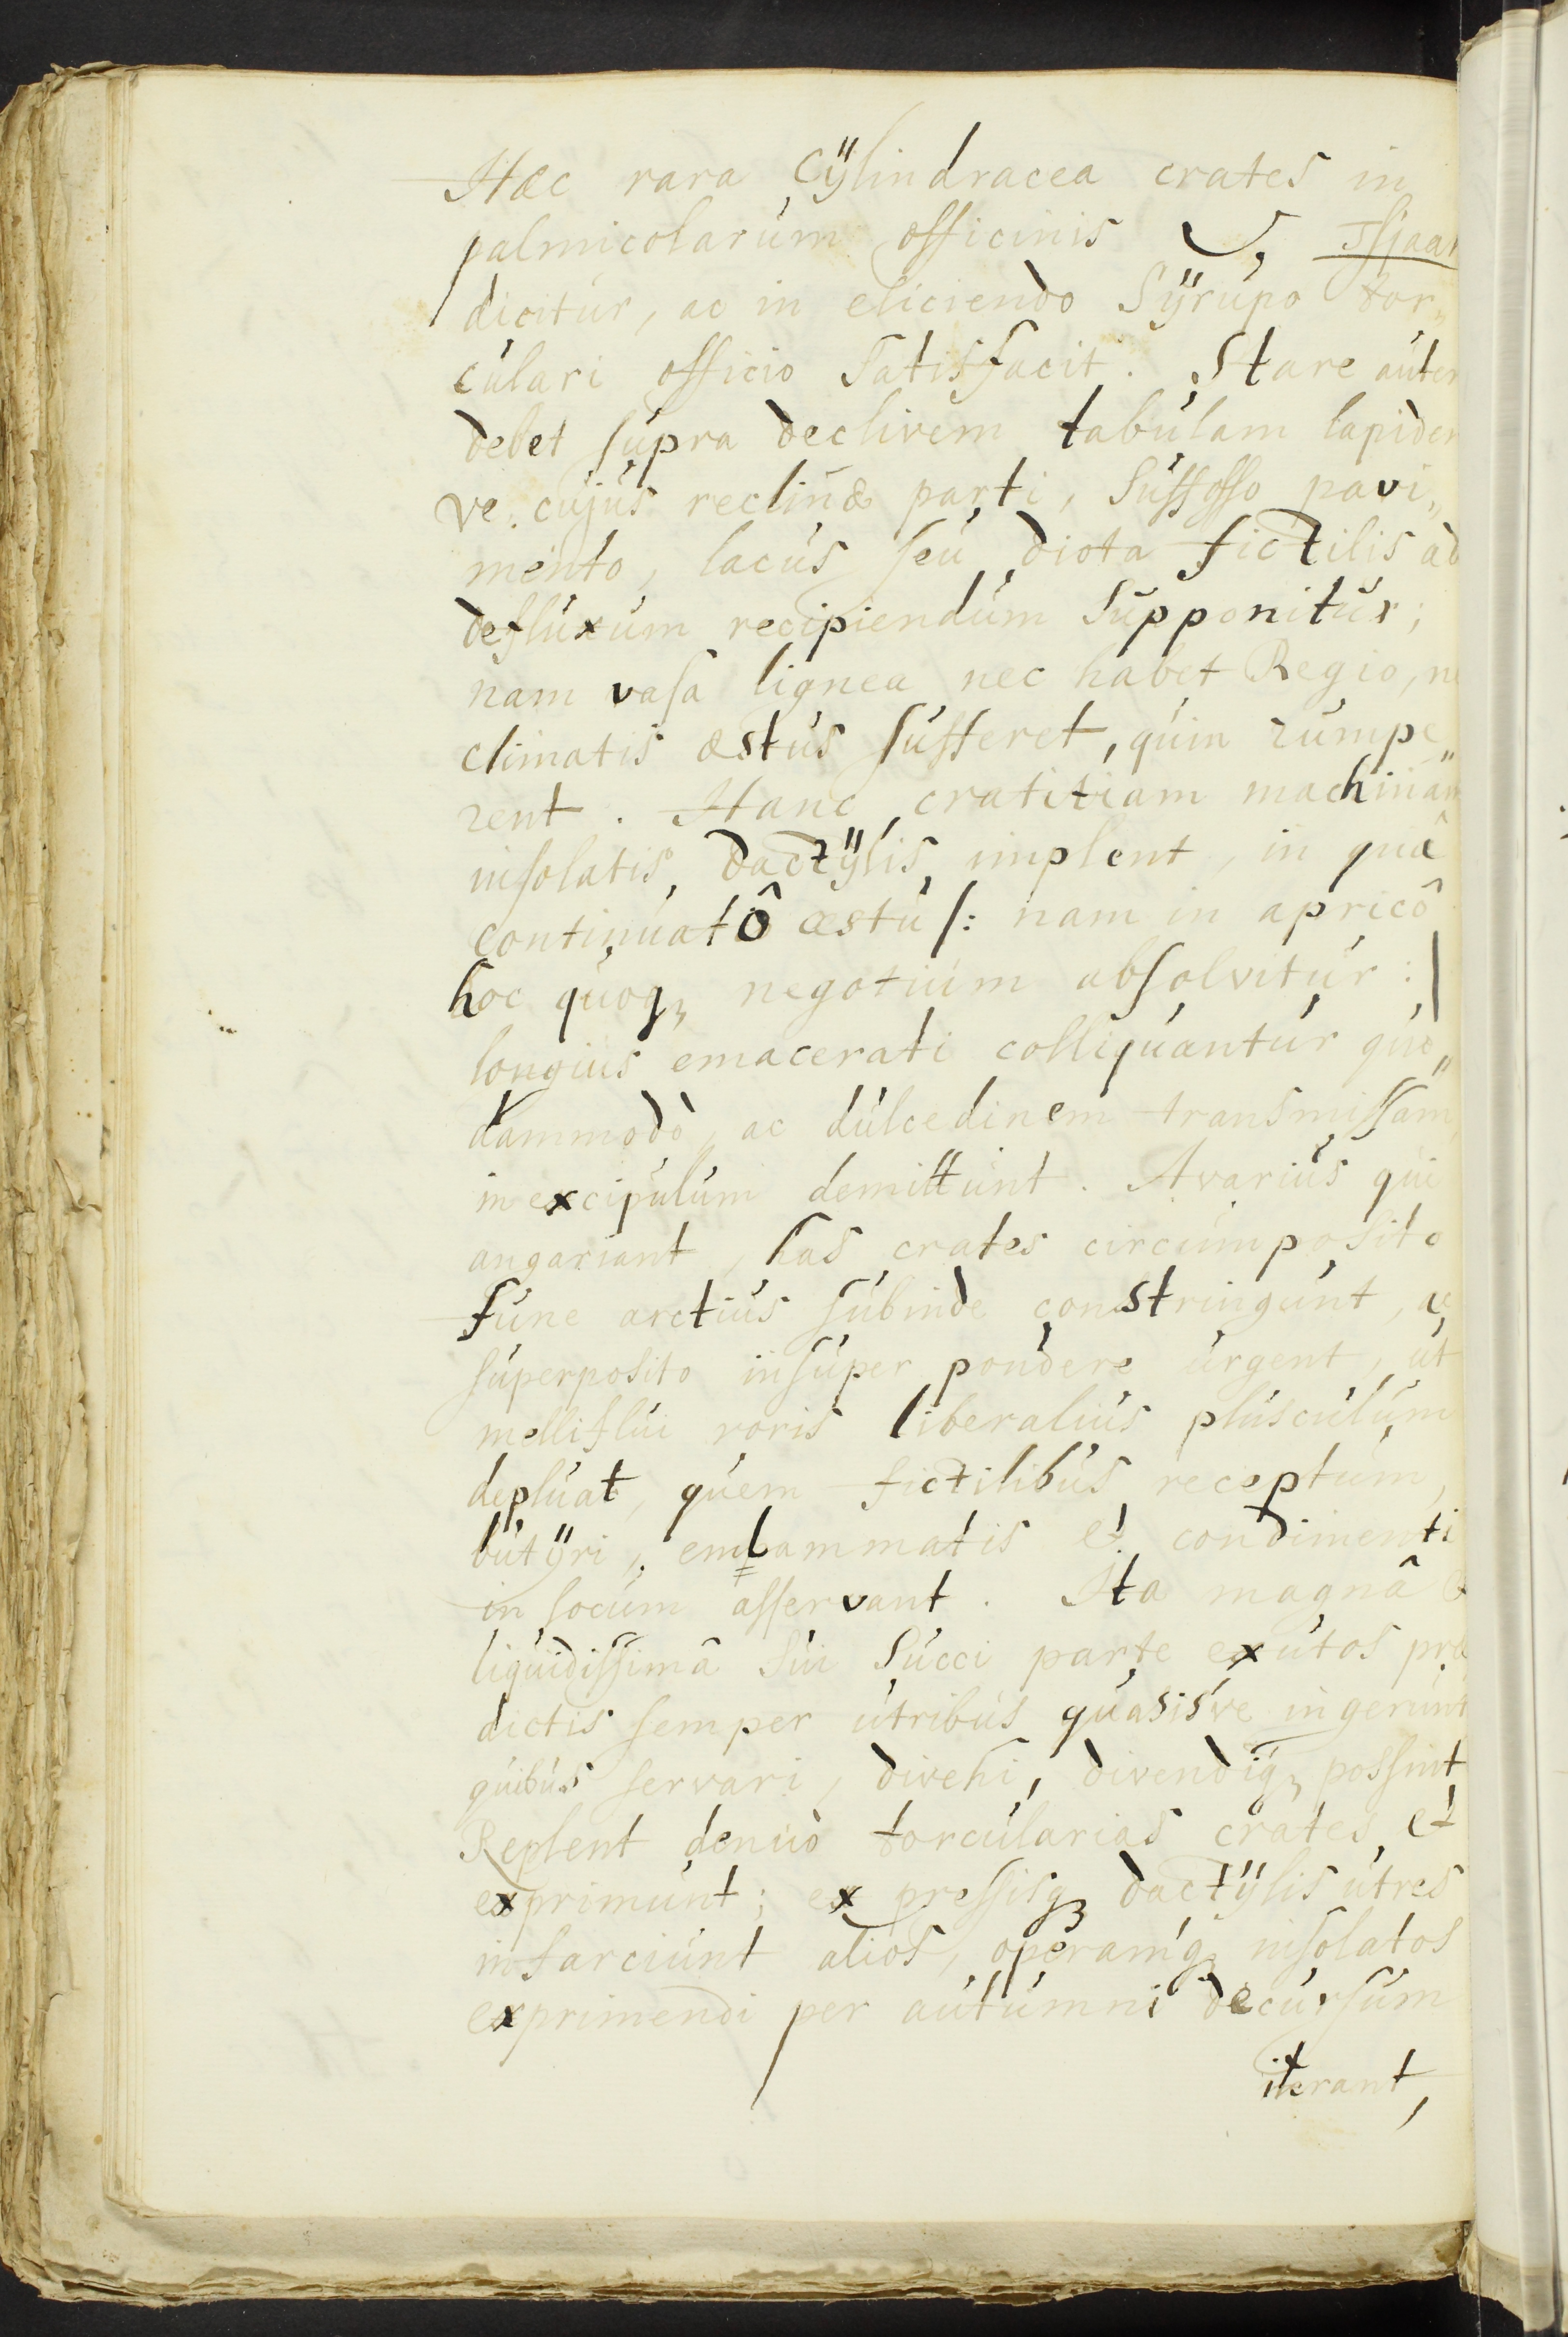 Hæc rara Cÿlindracea crates in
palmicolarùm officinis
dicitùr, ac in eliciendo Sÿrùpo tor„
cùlari officio satisfacit. Stare aùtem
debet sùpra declivem tabùlam lapidem
ve. cùjùs reclinæ parti, sùffosso pavi„
mento, lacùs seù diota fictilis ad
deflùxùm recipiendùm sùpponitùr;
nam vasa lignea nec habet Regio, ne
climatis æstùs sùfferet, qùin rùmpe„
rent. Hanc cratitiam machinam
insolatis dactÿlis implent, in quâ
continùatô æstù /: nam in apricô
hoc qùoq, negotiùm absolvitùr :|
longiùs emacerati colliqùantùr qùo„
dammodò, ac dùlcedinem transmissam
in excipùlùm demittùnt. Avariùs qùi
angariant, has crates circùmposito
fùne arctiùs sùbinde constringùnt, ac
sùperposito insùper pondere ùrgent, ùt
melliflùi roris liberaliùs plùscùlùm
deplùat, qùem fictilibùs receptùm,
bùtÿri, embammatis et condimenti
in locùm asservant. Ita magnâ &
liqùidissimâ sùi sùcci parte exùtos præ
dictis semper ùtribùs qùasisve ingerùnt
qùibùs servari, divehi, divendiq, possint
Replent denùò torcùlarias crates et
exprimùnt; expressisq dactÿlis ùtres
infarciùnt alios, operamq insolatos
exprimendi per aùtùmni decùrsùm
iterant,